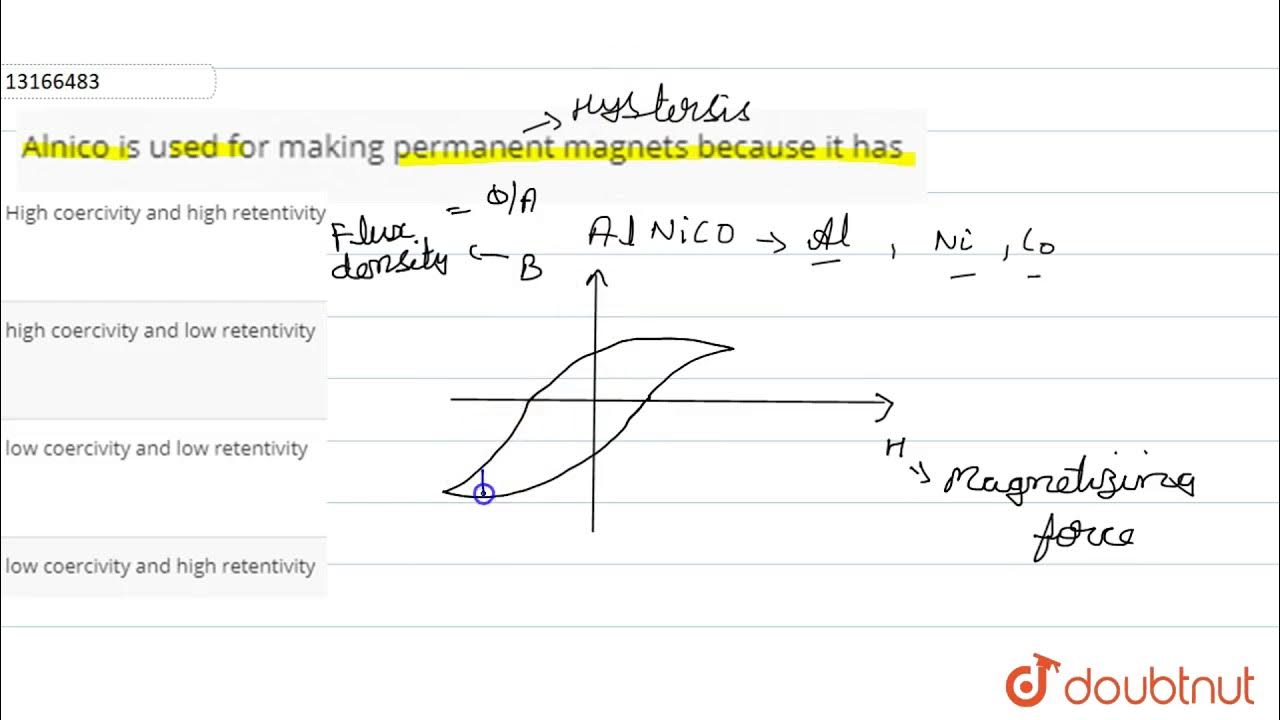 13166483
→ Hystersis
Alnico is used for making permanent magnets because it has
High coercivity and high retentivity
= Φ/A
Flux density ← B
Al NiCO → Al , Ni , Co
high coercivity and low retentivity
H
→ Magnetizing
force
low coercivity and low retentivity
low coercivity and high retentivity
doubtnut